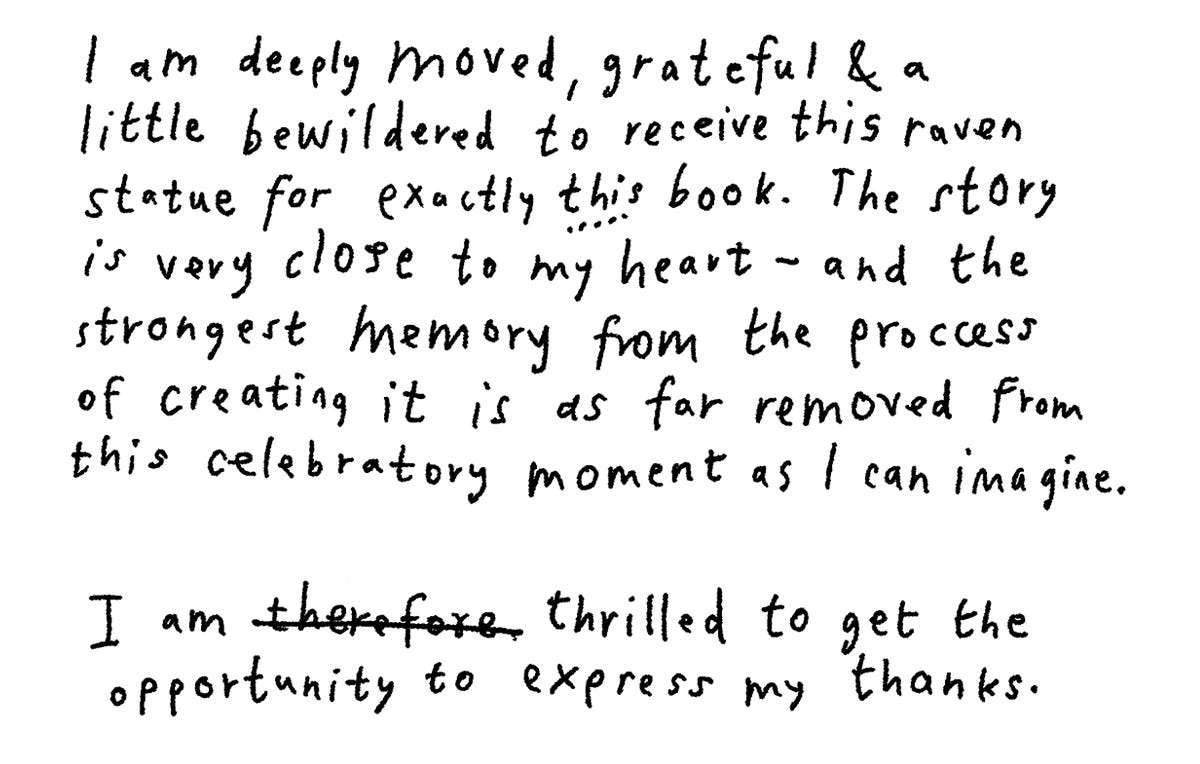 I am deeply moved, grateful & a
little bewildered to receive this raven
statue for exactly this book. The story
is very close to my heart - and the
strongest memory from the proccess
of creating it is as far removed from
this celebratory moment as I can imagine.
I am therefore thrilled to get the
opportunity to express my thanks.